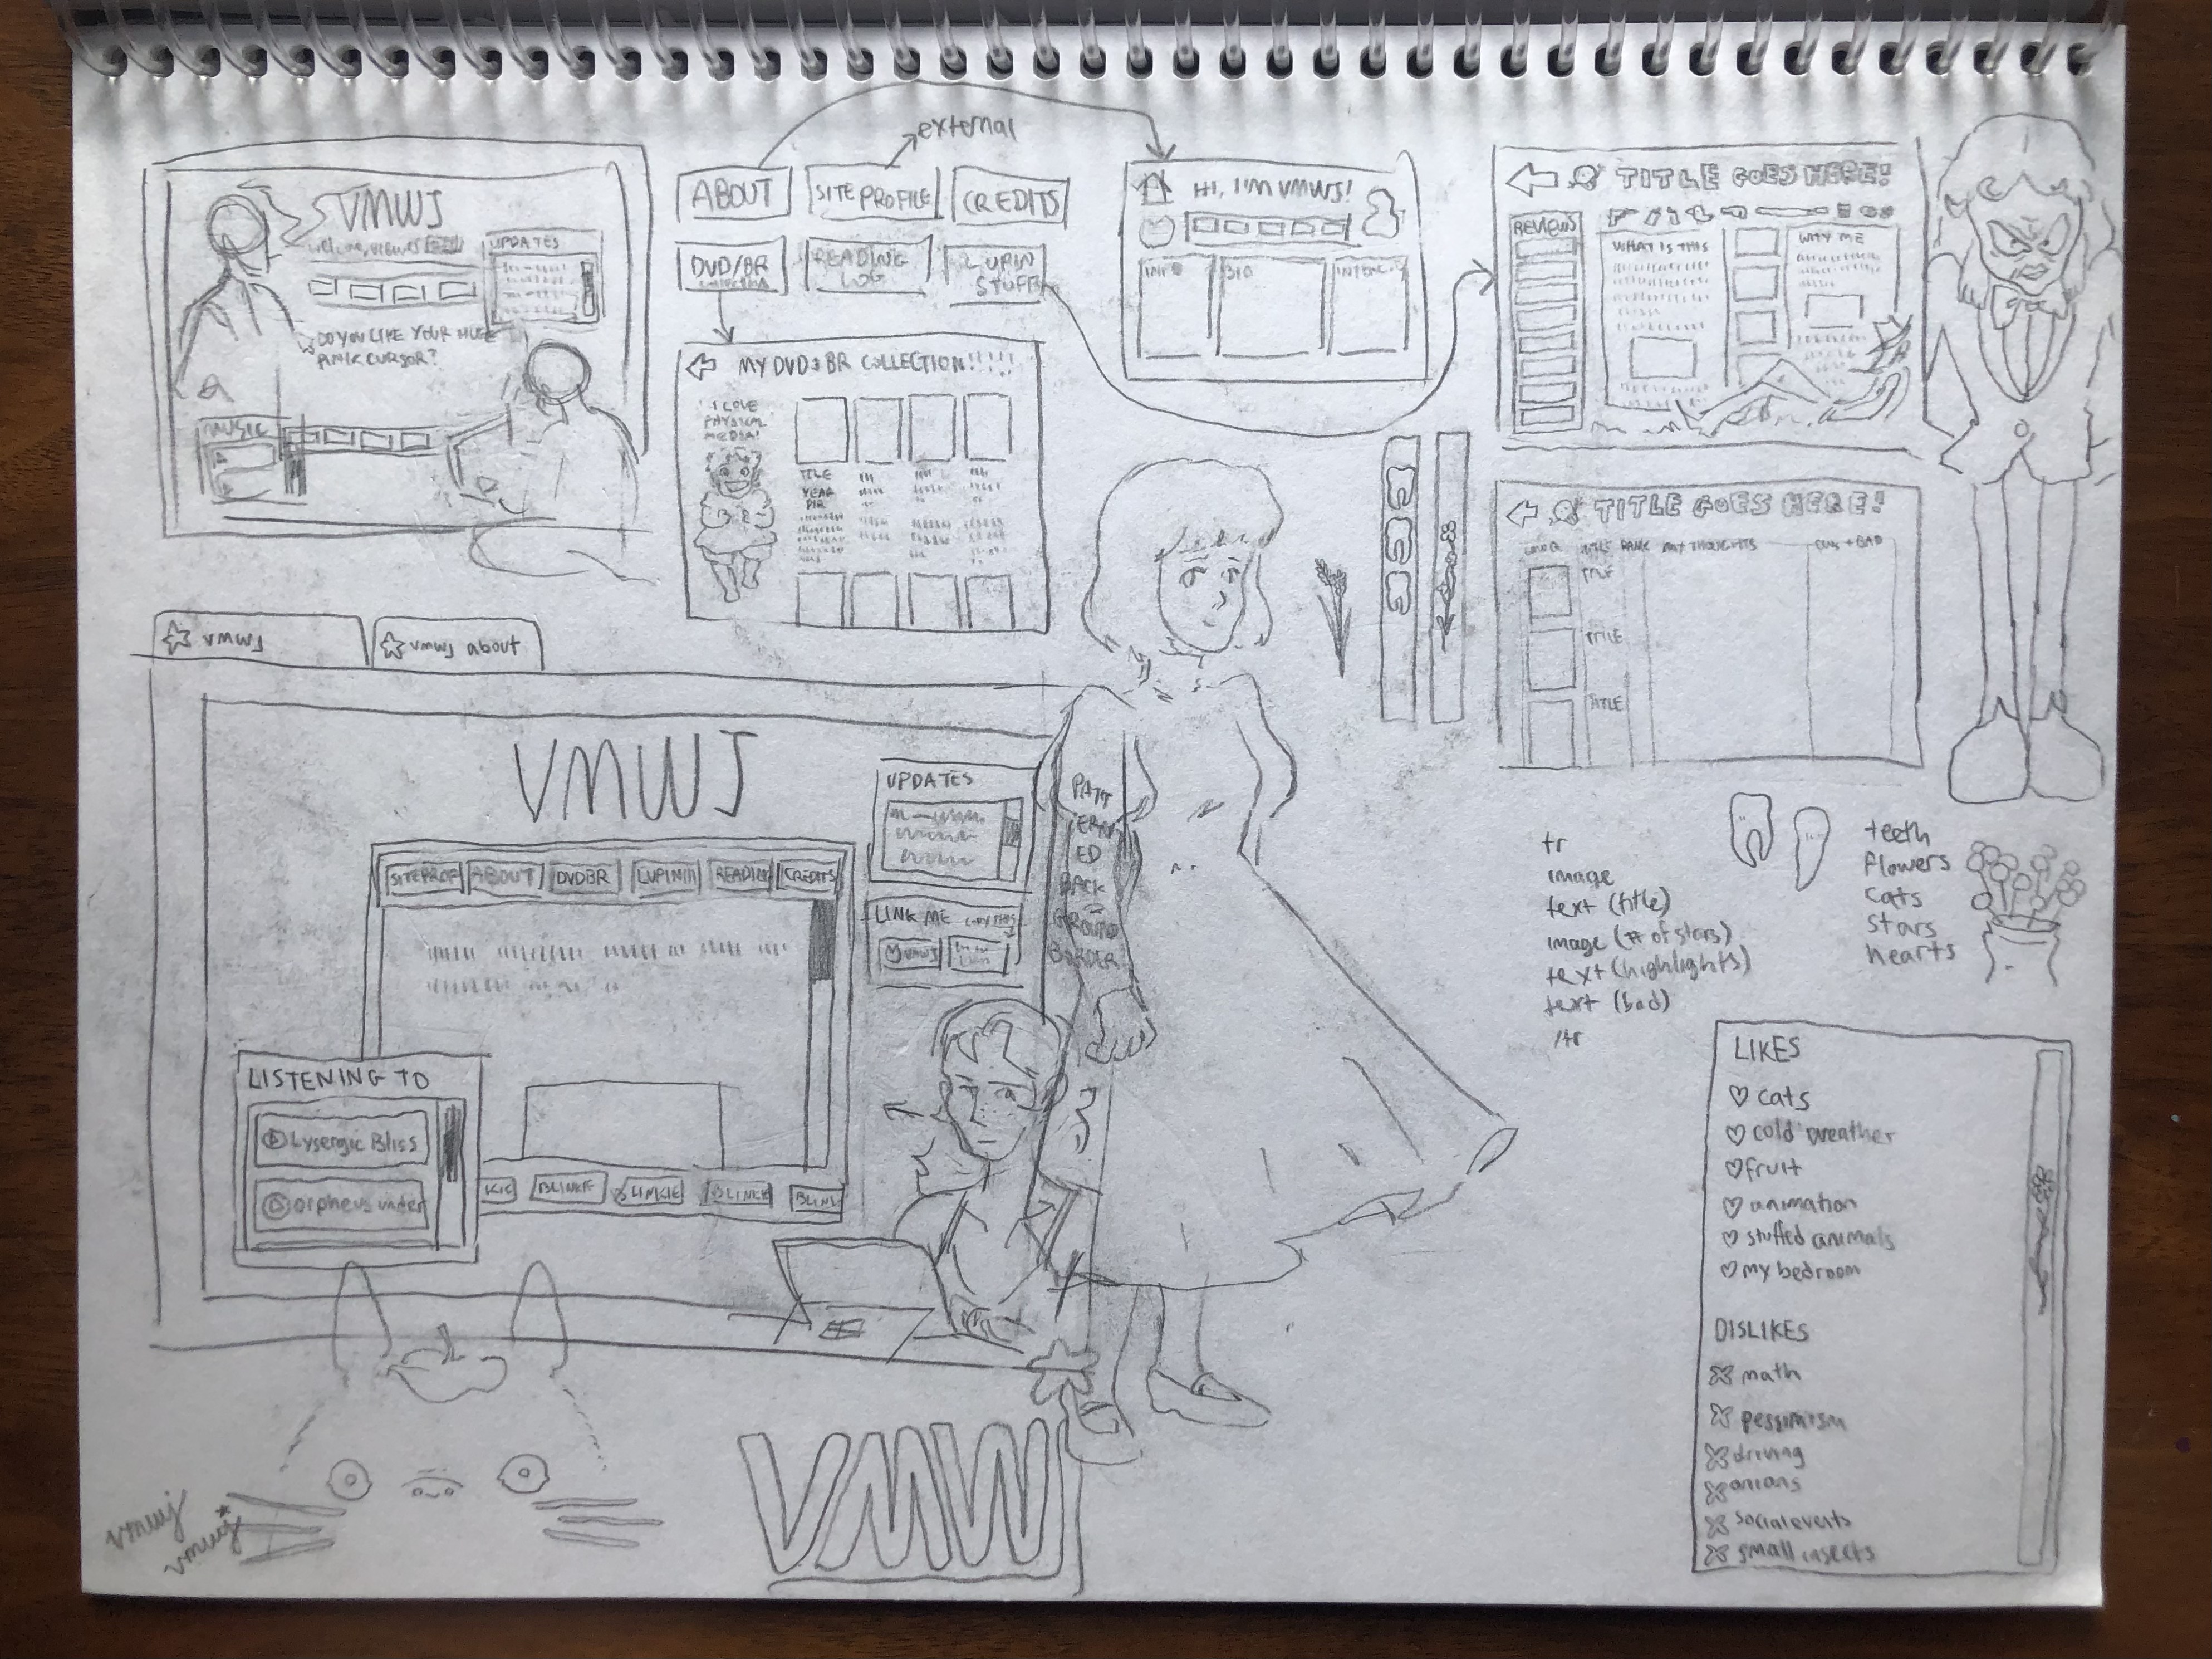 VMWJ
UPDATES
DO YOU LIKE YOUR HUGE
PINK CURSOR?
MUSIC
external
ABOUT
SITE PROFILE
CREDITS
DVD/BR
collection
READING
LOG
LUPIN
STUFF
MY DVD & BR COLLECTION!!!!!
I LOVE
PHYSICAL
MEDIA!
TITLE
YEAR
DIR
HI, I'M VMWJ!
INFO
BIO
TITLE GOES HERE!
REVIEWS
WHAT IS THIS
WHY ME
TITLE GOES HERE!
TITLE RANK MY THOUGHTS
TITLE
TITLE
TITLE
vmwj
vmwj about
VMWJ
SITEPROF
ABOUT
DVDBR
LUPINIII
READING
CREDITS
UPDATES
LINK ME
VMWJ
PATT
ERN
ED
BACK-
GROUND
BORDER
LISTENING TO
Lysergic Bliss
orpheus under
KIE
BLINKIE
BLINKIE
BLINKIE
BLINK
tr
image
text (title)
image (# of stars)
text (highlights)
text (bad)
/tr
teeth
flowers
cats
stars
hearts
LIKES
cats
cold weather
fruit
animation
stuffed animals
my bedroom
DISLIKES
math
pessimism
driving
onions
social events
small insects
vmwj
vmwj
VMW